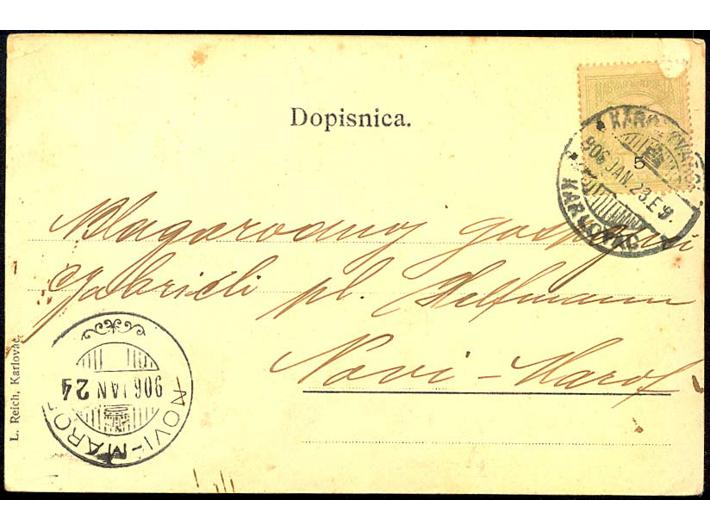 Dopisnica.
5
KARLOVAC
906 JAN. 23. E 9
Blagorodnoj gospogjini
Gabrieli pl. Helfmann
Novi-Marof
NOVI-MAROF
906 JAN 24
L. Reich, Karlovac.